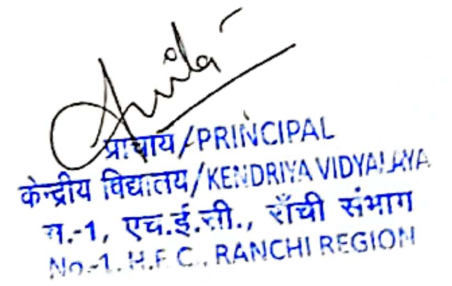 प्राचार्य/PRINCIPAL
केन्द्रीय विद्यालय/KENDRIYA VIDYALAYA
न.-1, एच.ई.सी., राँची संभाग
No.-1. H.E.C., RANCHI REGION